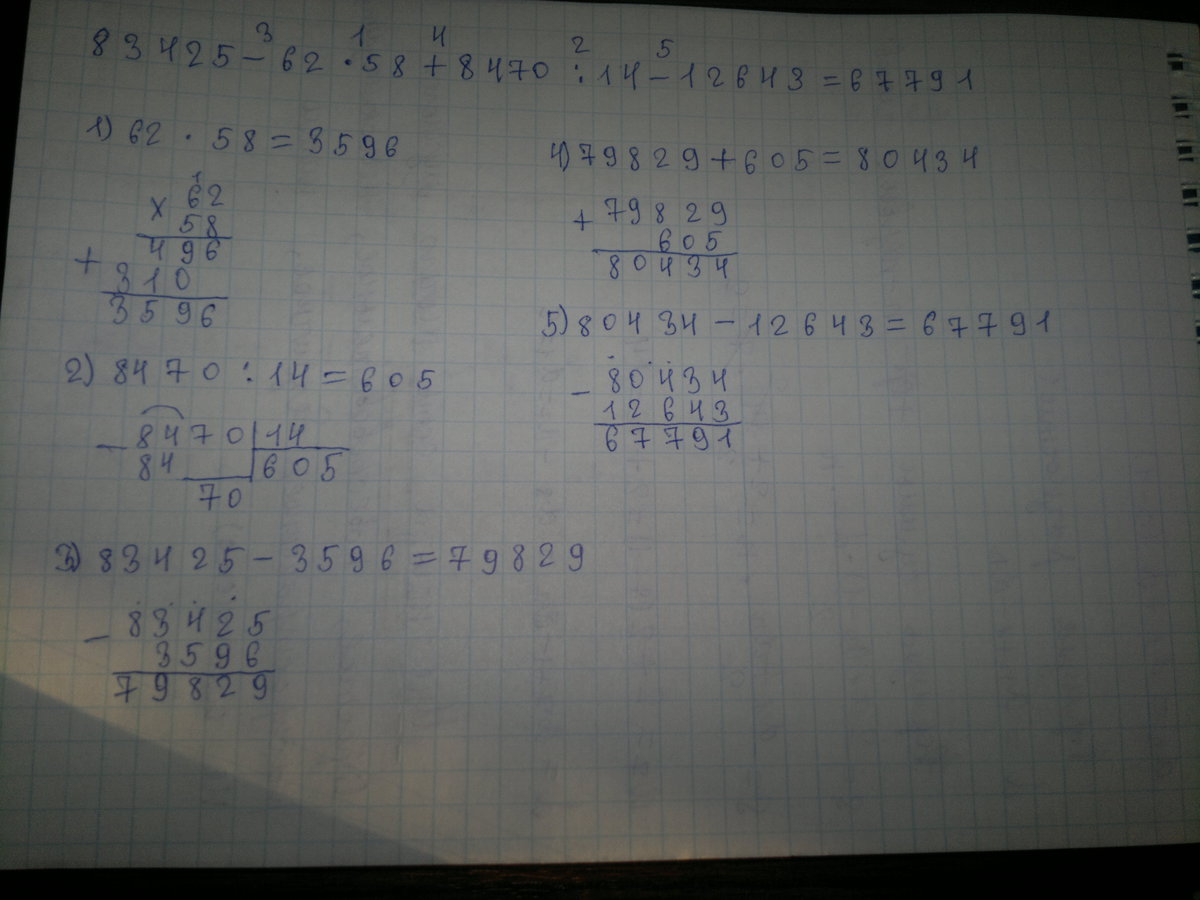 3 1 4 2 5
83425 - 62 · 58 + 8470 : 14 - 12643 = 67791
1) 62 · 58 = 3596
1
× 62
58
+ 496
310
3596
2) 8470 : 14 = 605
- 8470 | 14
84 | 605
70
3) 83425 - 3596 = 79829
- 83425
3596
79829
4) 79829 + 605 = 80434
+ 79829
605
80434
5) 80434 - 12643 = 67791
- 80434
12643
67791